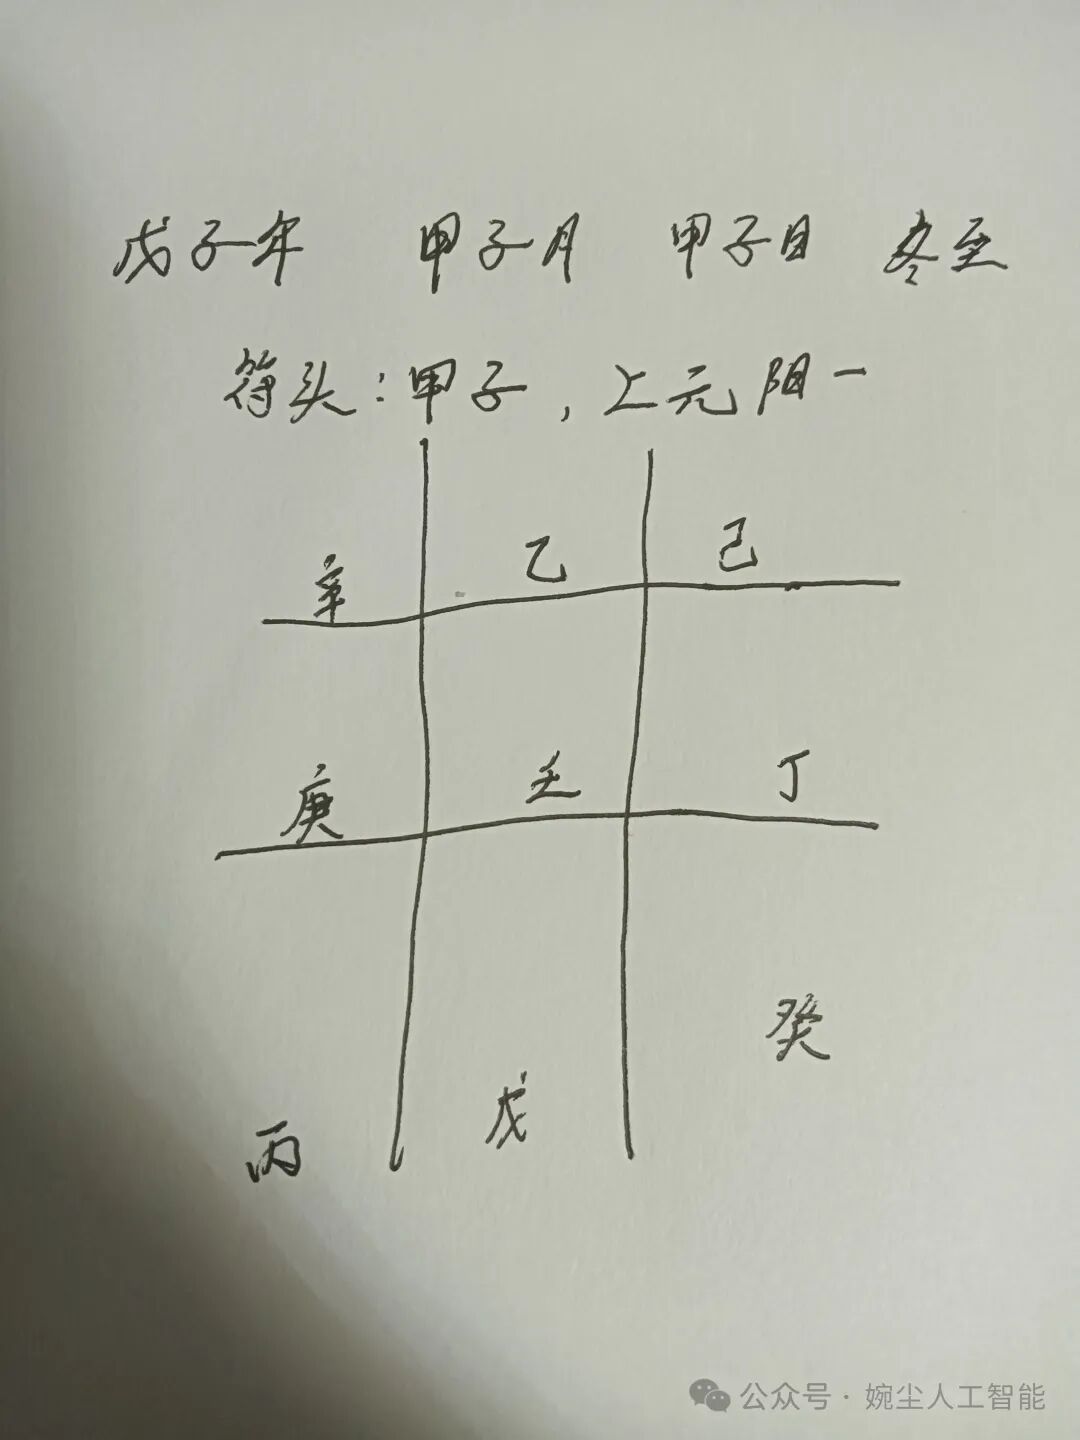 戊子年 甲子月 甲子日 冬至
符头：甲子，上元阳一
辛 乙 己
庚 壬 丁
丙 戊 癸
公众号·婉尘人工智能